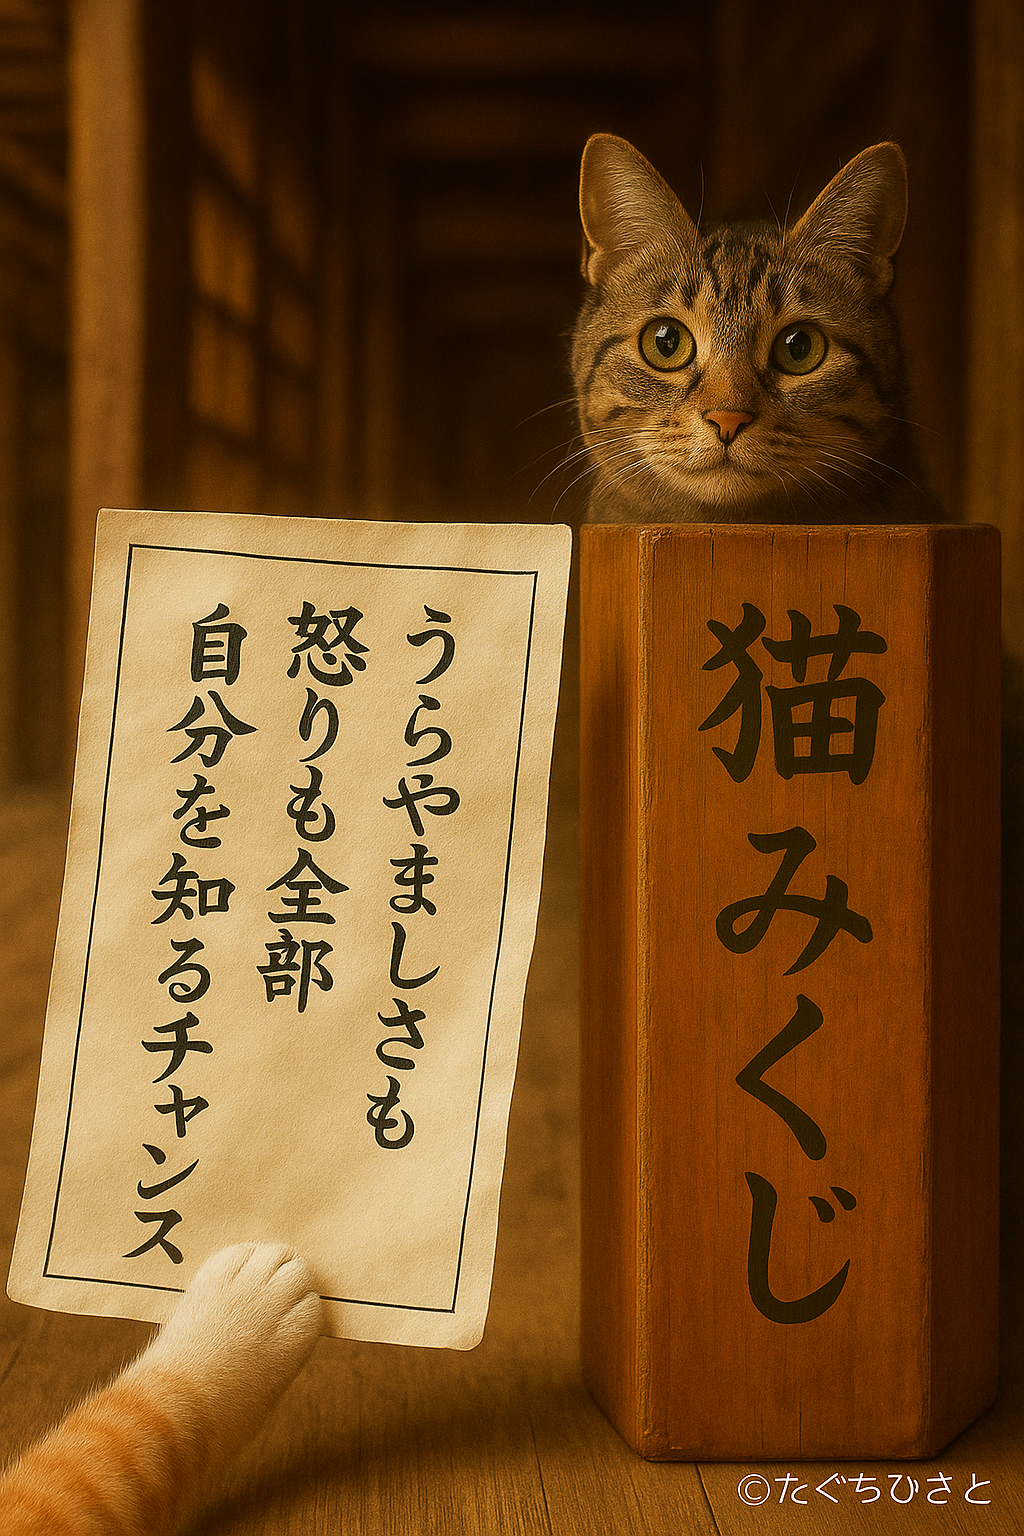 うらやましさも
怒りも全部
自分を知るチャンス
猫みくじ
©たぐちひさと